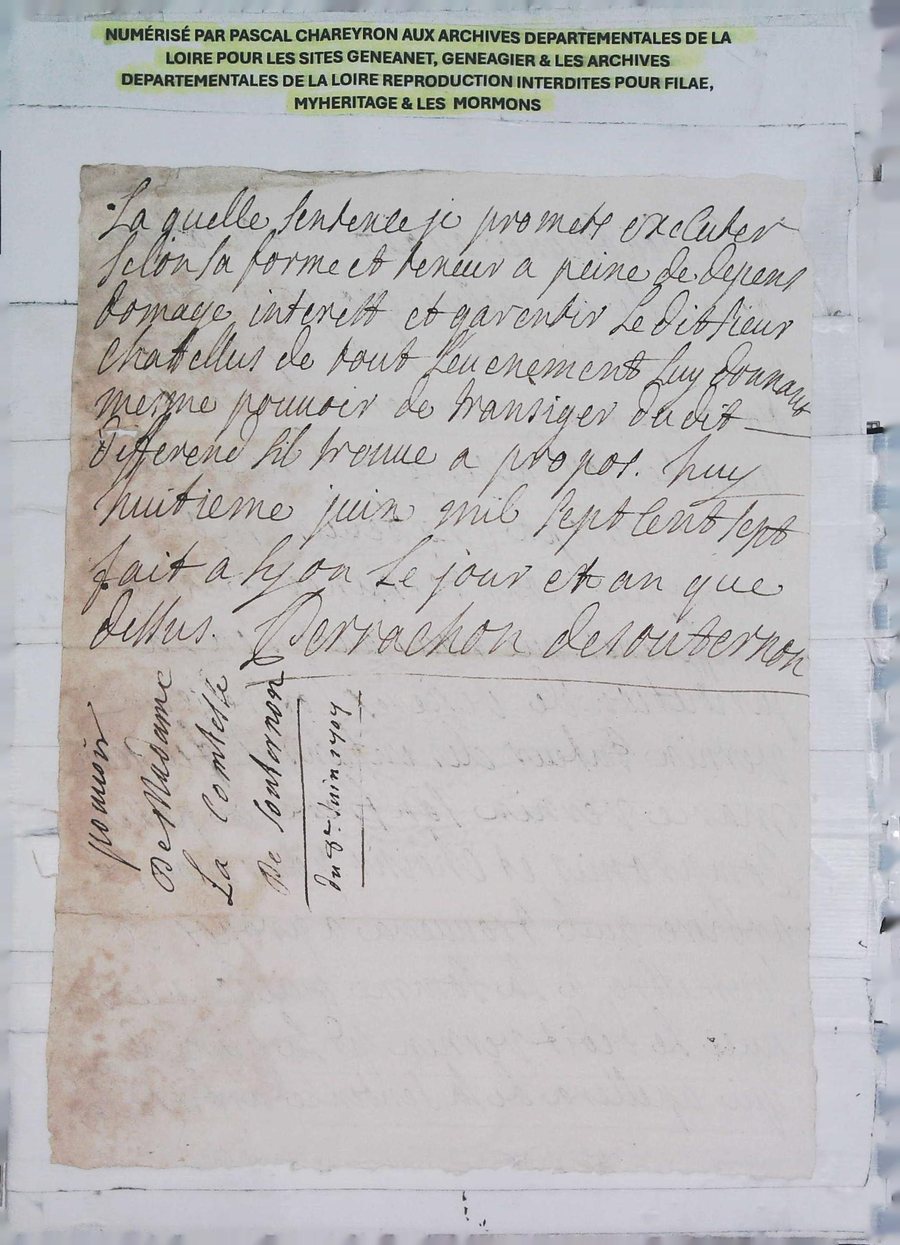 NUMÉRISÉ PAR PASCAL CHAREYRON AUX ARCHIVES DEPARTEMENTALES DE LA
LOIRE POUR LES SITES GENEANET, GENEAGIER & LES ARCHIVES
DEPARTEMENTALES DE LA LOIRE REPRODUCTION INTERDITES POUR FILAE,
MYHERITAGE & LES MORMONS
La quelle sentence je promets executer
selon sa forme et teneur a peine de depens
domage interest et garentir le dit sieur
chatellus de tout l'evenement luy donnant
mesme pouvoir de transiger du dit
different sil trouve a propos. huy
huitieme juin mil sept cent sept
fait a lyon le jour et an que
dessus. Perrachon desouternon
pouvoir
De Madame
La Comtesse
De Souternon
du 8e. Juin 1707